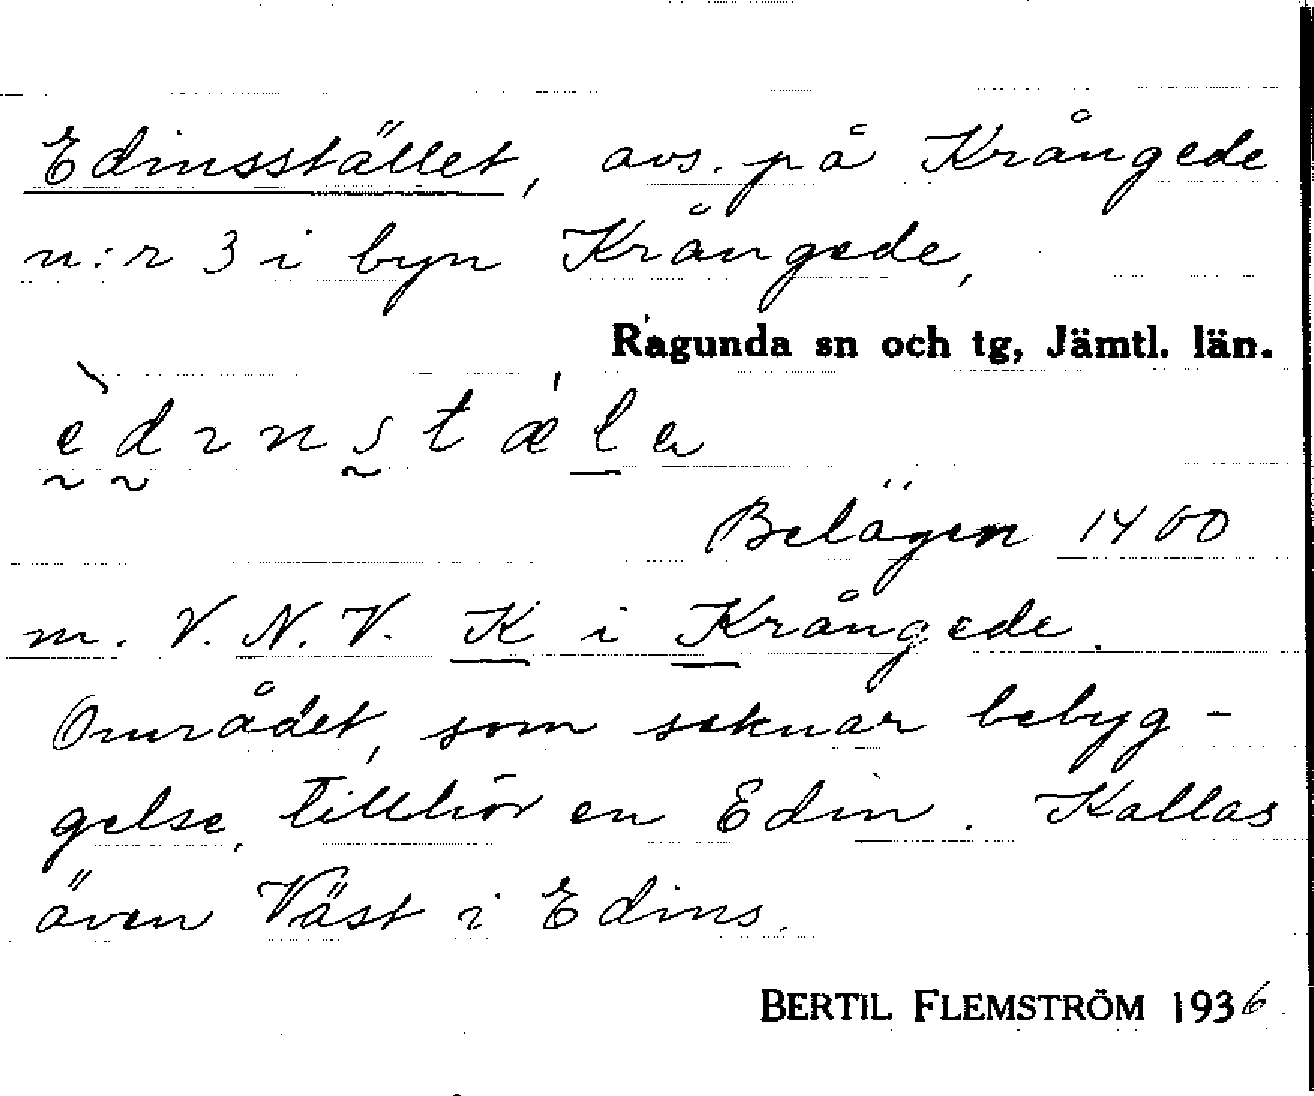 Edinsstället, avs. på Krångede
n:r 3 i byn Krångede,
Ragunda sn och tg, Jämtl. län.
Belägen 1400
m. V.N.V. K i Krångede.
Området, som saknar bebyg-
gelse, tillhör en Edin. Kallas
även Väst i Edins.
BERTIL FLEMSTRÖM 1936